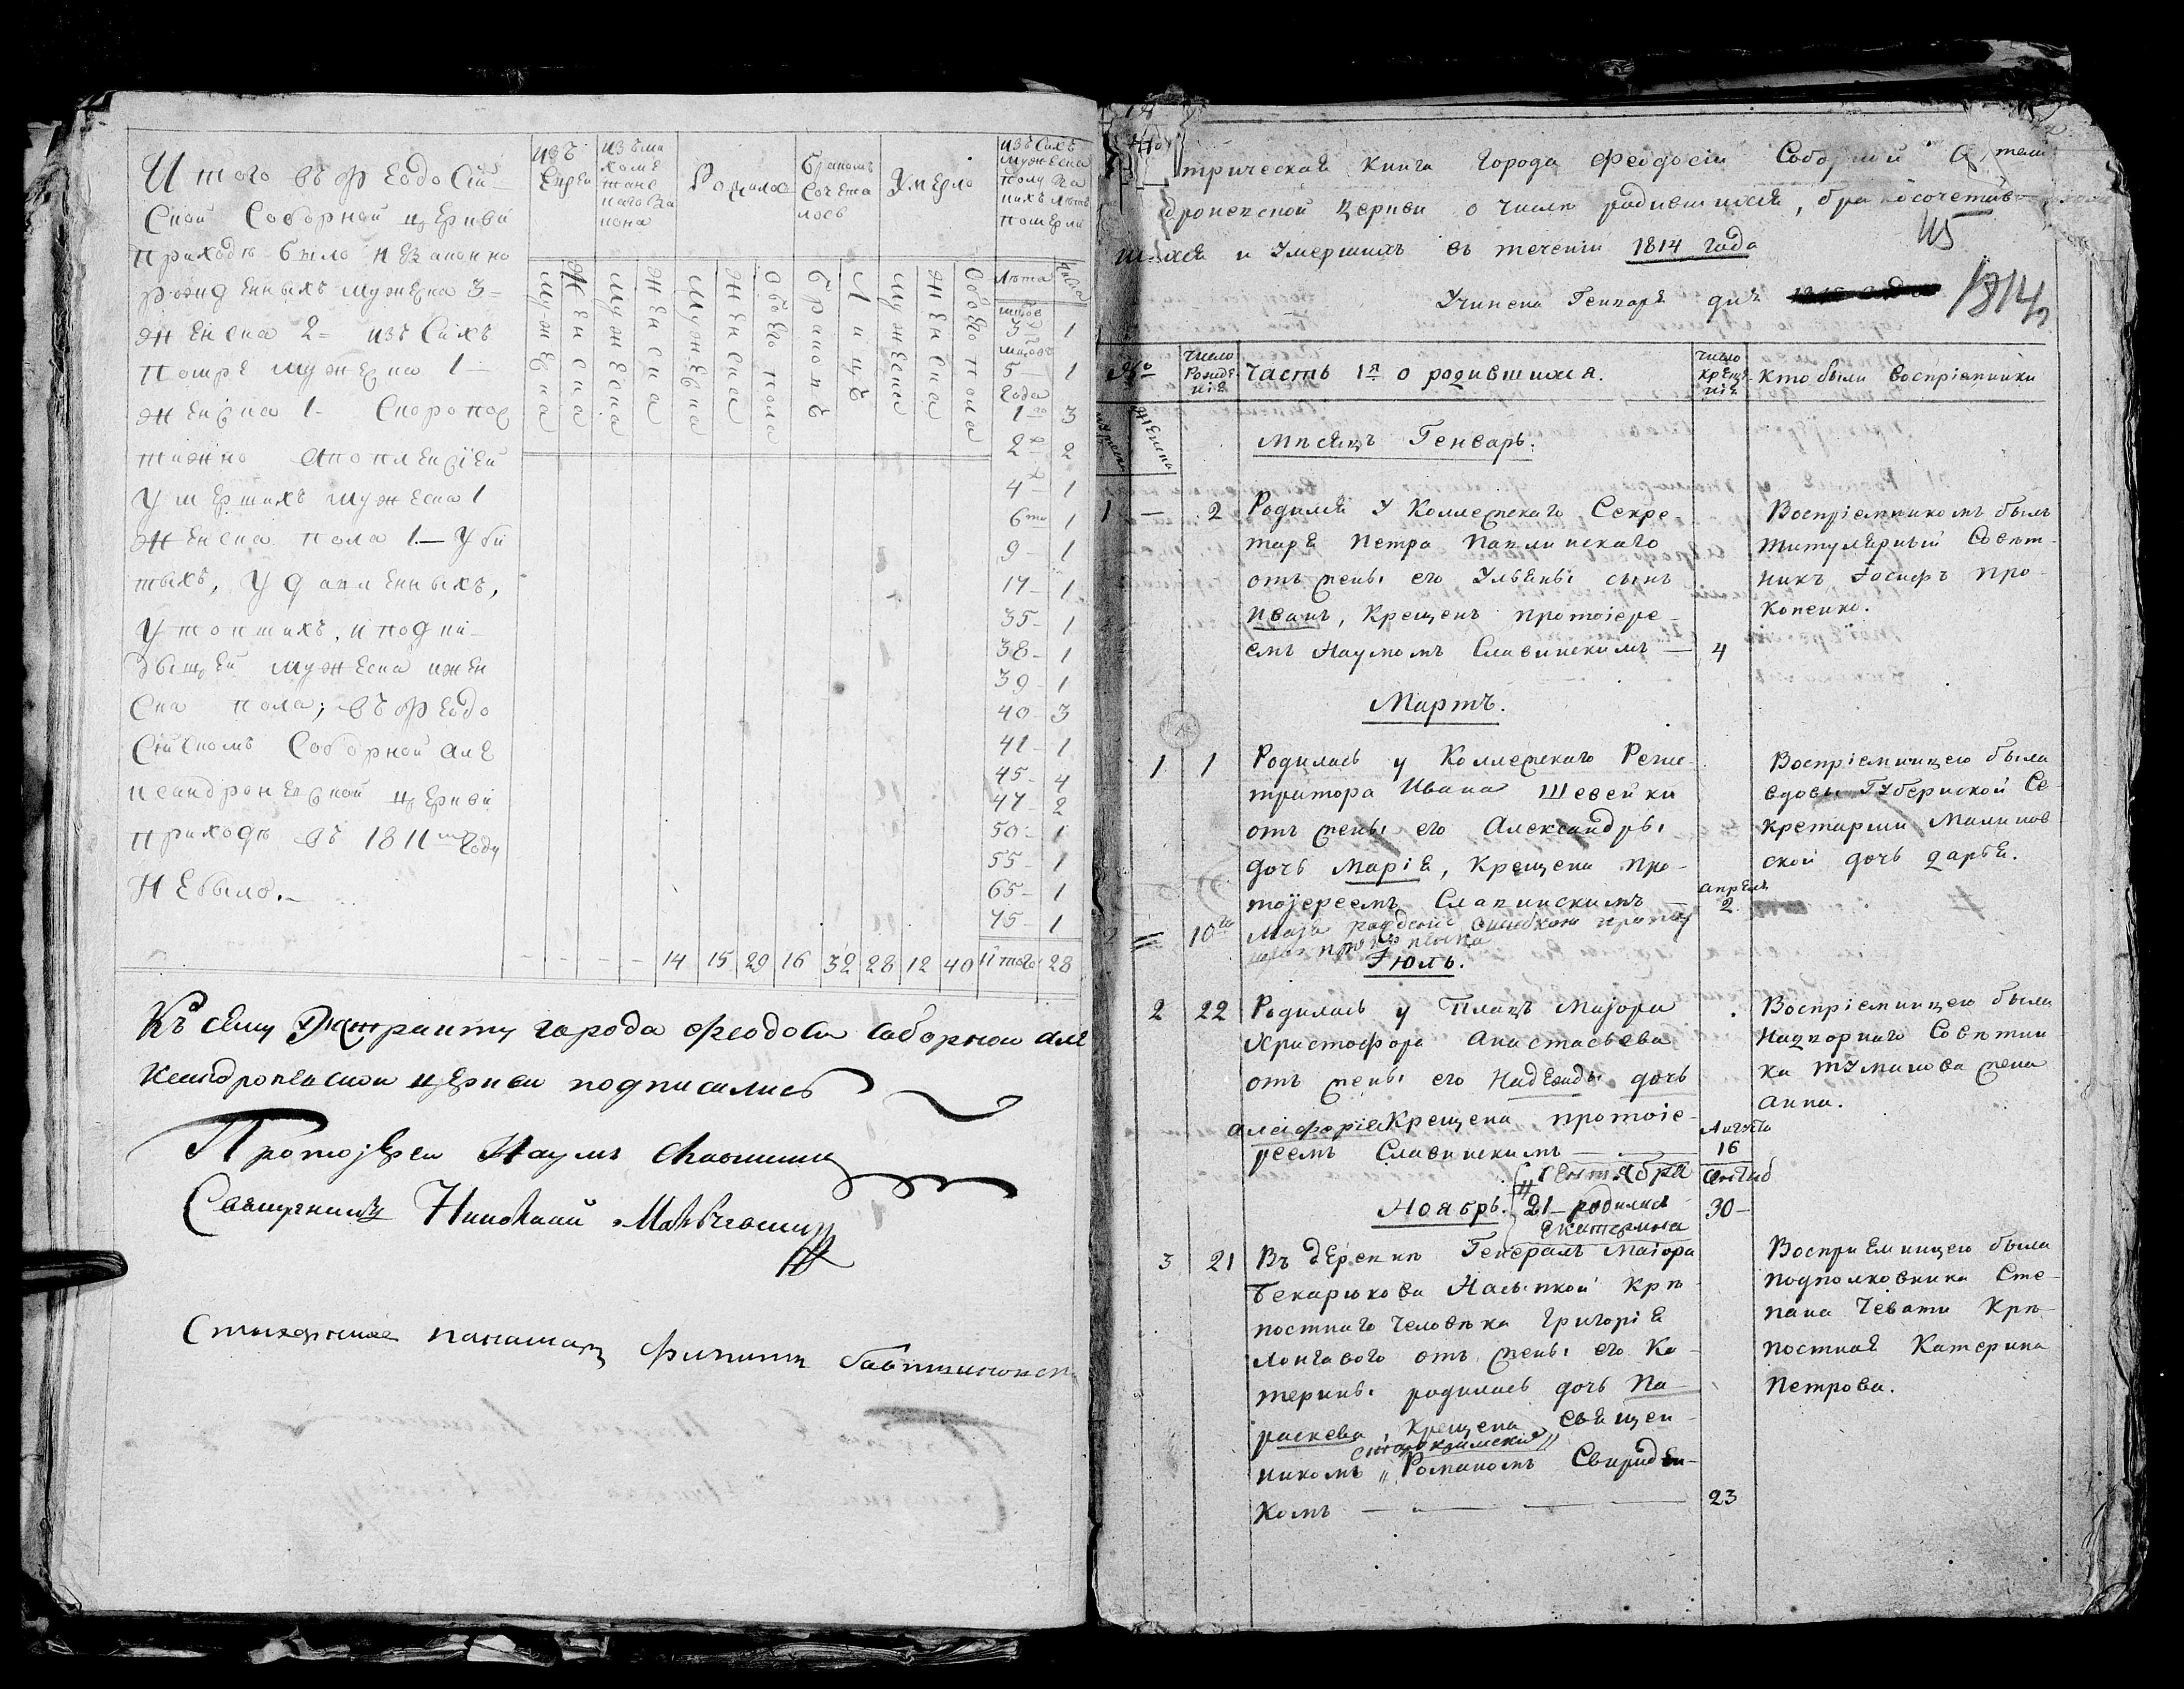 Итого въ Феодосій-
ской Соборной церкви
приходѣ было незаконно
рожденныхъ мужеска 3-
женска 2- изъ сихъ
помре мужеска 1-
женска 1- Скоропос
тижно апоплексіей
умершихъ мужеска 1
женска пола 1.- Уби
тыхъ, удавленныхъ,
утопшихъ, и подки-
дышей мужеска и жен
ска пола, въ Феодо
сійскомъ Соборной Але
ксандроневской церкви
приходѣ въ 1811мъ году
не было.-
изъ Евреи
изъ ма хоме танс каго за кона
Родилось
Бракомъ Сочета лось
Умерло
изъ сихъ мужеска полу на ихъ лѣтъ померли
Мужеска Женска Мужеска Женска Мужеска Женска Обоего пола Браковъ Лицъ Мужеска Женска Обоего пола
Лѣта Числа
3х 1
5 - 1
Года
1го 3
2х 2
4х 1
6ти 1
9 - 1
17 - 1
35 - 1
38 - 1
39 - 1
40 - 3
41 - 1
45 - 4
47 - 2
50 - 1
55 - 1
65 - 1
75 - 1
- - - - 14 15 29 16 32 28 12 40 Итого 28
Къ сему Экстракту города Феодоси соборной Але
ксандроневской церкви подписались
Протоіерей Наумъ Славинский
Священникъ Николай
Стихарный пономарь Филиппъ
трическая Книга Города Феодосіи Соборной
дроневской Церкви о числѣ родившихся, бракосочетав-
шихся и Умершихъ въ теченіи 1814 года
45
Учинена Генваря дня 1814
№ Число Рожде нія Часть 1я о родившихся. Число Креще нія Кто были Воспріемники
мужеска женска
Мѣсяцъ Генварь.
1 - 2 Родился у Коллежскаго Секре
таря Петра Павлинскаго
отъ жены его Ульяны сынъ
Иванъ, Крещенъ Протоіере-
емъ Наумомъ Славинскимъ - 4
Воспріемникомъ былъ
Титулярный Совѣт-
никъ Іосифъ Про-
копенко.
Мартъ.
1 1 Родилась у Коллежскаго Реги-
стратора Ивана Шевейки
отъ жены его Александры
дочь Марія, Крещена Про-
тоіереемъ Славинскимъ - Апрѣля 2
Воспріемницею была
вдовы Губернской Се-
кретарши Малинов
ской дочь Дарья.
10го Маія
Іюль.
2 22 Родилась у Плацъ Маіора
Христофора Анастасьева
отъ жены его Надежды дочь
Крещена протоіе-
реемъ Славинскимъ - Августа 16
Воспріемницею была
Надворнаго Совѣтни
ка Туманова жена
Анна.
Сентября
Ноябрь. 21 - родилась 30 -
Екатерина
3 21 Въ деревнѣ Генералъ Маіора
Бекарюкова Насыпкой Крѣ-
постнаго человѣка Григорія
Лонгавого отъ жены его Ка-
терины родилась дочь Па-
раскева, Крещена священ-
старокримскимъ
никомъ Романомъ Свириден-
комъ - 23
Воспріемницею была
подполковника Сте-
пана Чевати Крѣ-
постная Катерина
Петрова.